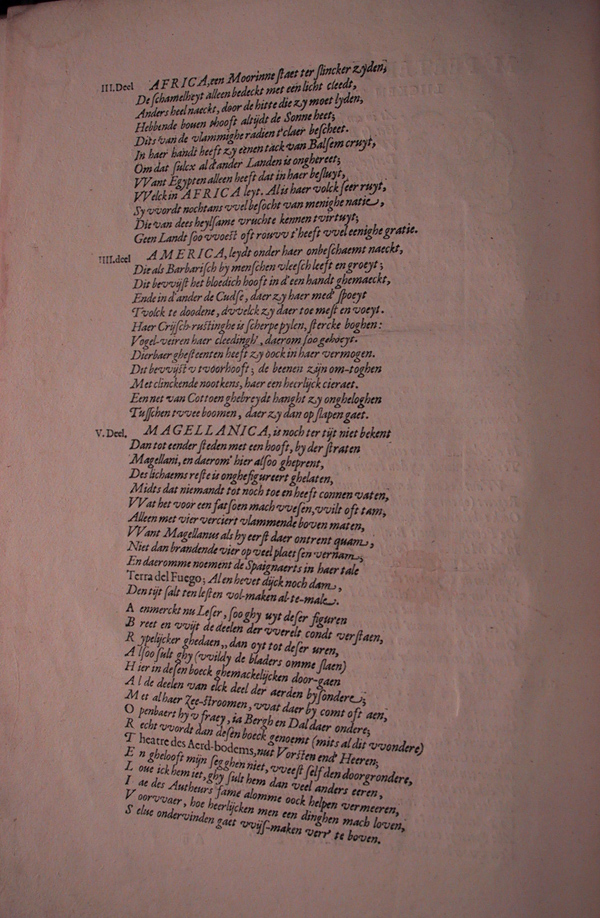 III.Deel AFRICA, een Moorinne ſtaet ter ſlincker zyden,
De ſchamelheyt alleen bedeckt met een licht cleedt,
Anders heel naeckt, door de hitte die zy moet lyden,
Hebbende bouen thooft altijdt de Sonne heet;
Dits van de vlammighe radien t'claer beſcheet.
In haer handt heeft zy eenen tack van Balſem cruyt,
Om dat ſulcx al d'ander Landen is onghereet;
VVant Egypten alleen heeft dat in haer beſluyt,
VVelck in AFRICA leyt. Al is haer volck ſeer ruyt,
Sy vvordt nochtans vvel beſocht van menighe natie,
Die van dees heylſame vruchte kennen t'virtuyt;
Geen Landt ſoo vvoeſt oft rouvv t'heeft vvel eenighe gratie.
IIII.deel AMERICA, leydt onder haer onbeſchaemt naeckt,
Die als Barbariſch by menſchen vleeſch leeft en groeyt;
Dit bevvijſt het bloedich hooft in d'een handt ghemaeckt,
Ende in d'ander de Cudſe, daer zy haer med' ſpoeyt
T'volck te doodene, dvvelck zy daer toe meſt en voeyt.
Haer Crijſch-ruſtinghe is ſcherpe pylen, ſtercke boghen:
Vogel-veiren haer cleedingh', daerom ſoo gehoeyt.
Dierbaer gheſteenten heeft zy oock in haer vermogen.
Dit bevvijſt v t'voorhooft; de beenen zijn om-toghen
Met clinckende nootkens, haer een heerlijck cieraet.
Een net van Cottoen ghebreydt hanght zy ongheloghen
Tuſſchen tvvee boomen, daer zy dan op ſlapen gaet.
V. Deel, MAGELLANICA, is noch ter tijt niet bekent
Dan tot eender ſteden met een hooft, by der ſtraten
Magellani, en daerom' hier alſoo gheprent,
Des lichaems reſte is onghefigureert ghelaten,
Midts dat niemandt tot noch toe en heeft connen vaten,
VVat het voor een fatſoen mach vveſen, vvilt oft tam,
Alleen met vier verciert vlammende boven maten,
VVant Magellanus als hy eerſt daer ontrent quam,
Niet dan brandende vier op veel plaetſen vernam;
En daeromme noement de Spaignaerts in haer tale
Terra del Fuego; Al en hevet dijck noch dam,
Den tijt ſalt ten leſten vol-maken al-te-male.
A enmerckt nu Leſer, ſoo ghy uyt deſer figuren
B reet en vvijt de deelen der vverelt condt verſtaen,
R ypelijcker ghedaen, dan oyt tot deſer uren,
A lſoo ſult ghy (vvildy de bladers omme ſlaen)
H ier in deſen boeck ghemackelijcken door-gaen
A l de deelen van elck deel der aerden byſondere;
M et al haer Zee-ſtroomen, vvat daer by comt oft aen,
O penbaert hy v fraey, ia Bergh en Dal daer ondere;
R echt vvordt dan deſen boeck genoemt (mits al dit vvondere)
T heatre des Aerd-bodems, nut Vorſten end' Heeren;
E n ghelooft mijn ſegghen niet, vveeſt ſelf den doorgrondere,
L oue ick hem iet, ghy ſult hem dan veel anders eeren,
I ae des Autheurs fame alomme oock helpen vermeeren,
V oorvvaer, hoe heerlijcken men een dinghen mach loven,
S elue ondervinden gaet vvijſ-maken verr' te boven.